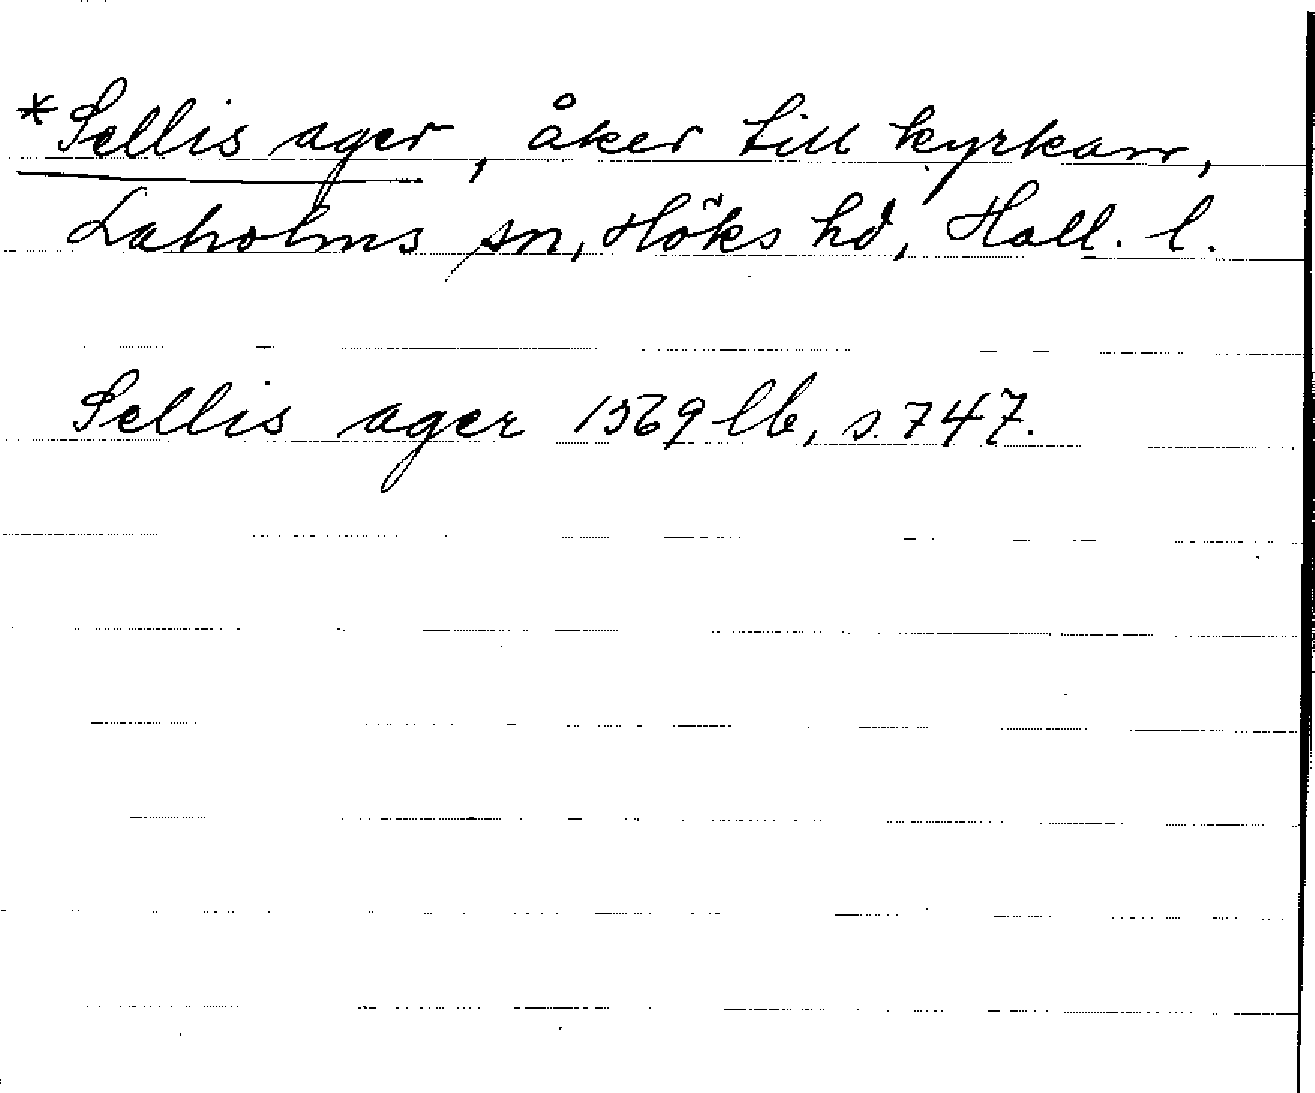 *Sellis ager, åker till kyrkan,
Laholms sn, Höks hd, Hall. l.
Sellis ager 1569 lb, s. 747.